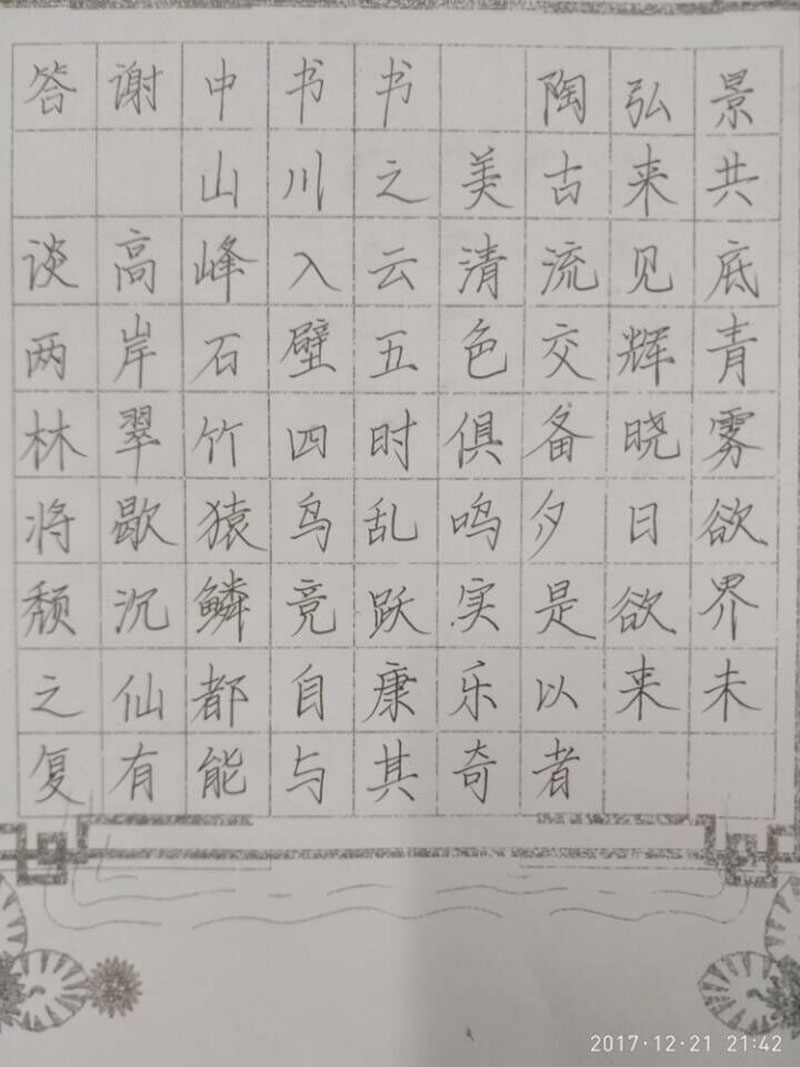 答谢中书书 陶弘景
山川之美古来共
谈高峰入云清流见底
两岸石壁五色交辉青
林翠竹四时俱备晓雾
将歇猿鸟乱鸣夕日欲
颓沉鳞竞跃实是欲界
之仙都自康乐以来未
复有能与其奇者
2017·12·21 21:42